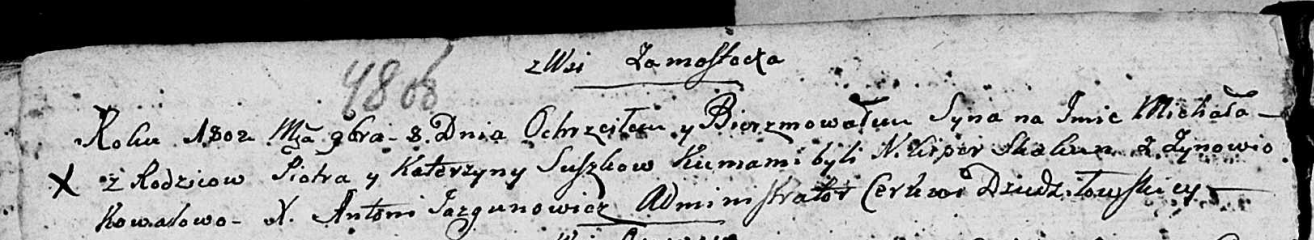 zWsi Zamostocka
4806
Roku 1802 Mca 9bra 8. Dnia Ochrzciłem y Bierzmowałem Syna na Jmie Michała –
X z Rodzicow Piotra y Katerzyny Suszkow Kumami byli Skakun z Zynowio
Kowalowo – X. Antoni Jazgunowicz Administrator Cerkwi Dziedziłowskiey